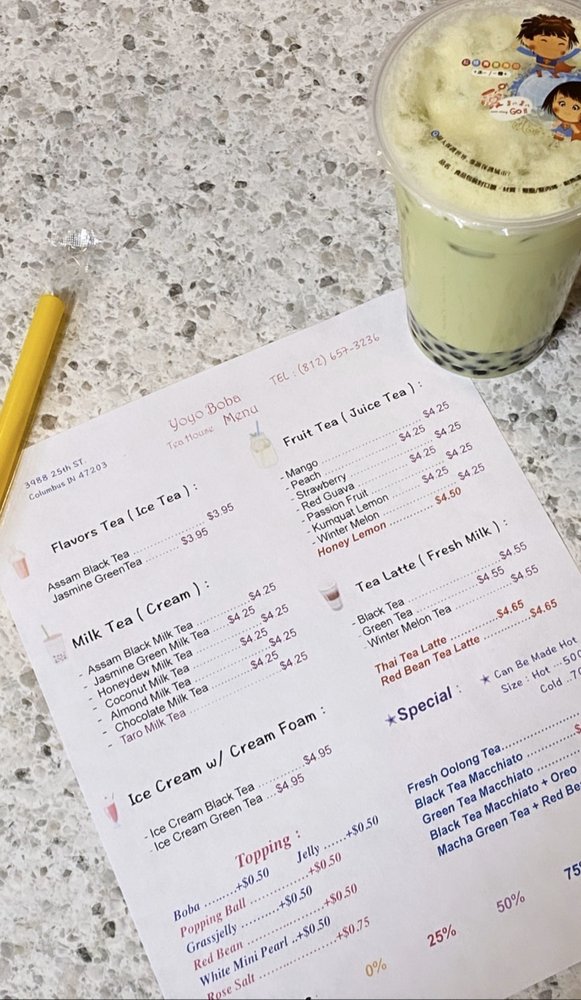 GO!!
Yoyo Boba
Tea House Menu
TEL : (812) 657-3236
3988 25th ST.
Columbus IN 47203
Flavors Tea ( Ice Tea ) :
Assam Black Tea $3.95
Jasmine GreenTea $3.95
Milk Tea ( Cream ) :
- Assam Black Milk Tea $4.25
- Jasmine Green Milk Tea $4.25
- Honeydew Milk Tea $4.25
- Coconut Milk Tea $4.25
- Almond Milk Tea $4.25
- Chocolate Milk Tea $4.25
- Taro Milk Tea $4.25
Ice Cream w/ Cream Foam :
- Ice Cream Black Tea $4.95
- Ice Cream Green Tea $4.95
Topping :
Boba ........+$0.50 Jelly ......+$0.50
Popping Ball ...............+$0.50
Grassjelly ..........+$0.50
Red Bean ..............+$0.50
White Mini Pearl ..+$0.50
Rose Salt ..................+$0.75
Fruit Tea ( Juice Tea ) :
- Mango $4.25
- Peach $4.25
- Strawberry $4.25
- Red Guava $4.25
- Passion Fruit $4.25
- Kumquat Lemon $4.25
- Winter Melon $4.25
Honey Lemon ............ $4.50
Tea Latte ( Fresh Milk ) :
- Black Tea $4.55
Green Tea $4.55
- Winter Melon Tea $4.55
Thai Tea Latte ............$4.65
Red Bean Tea Latte ............$4.65
★Special :
★ Can Be Made Hot
Size : Hot
Cold
Fresh Oolong Tea
Black Tea Macchiato
Green Tea Macchiato
Black Tea Macchiato + Oreo
Macha Green Tea + Red
0% 25% 50%